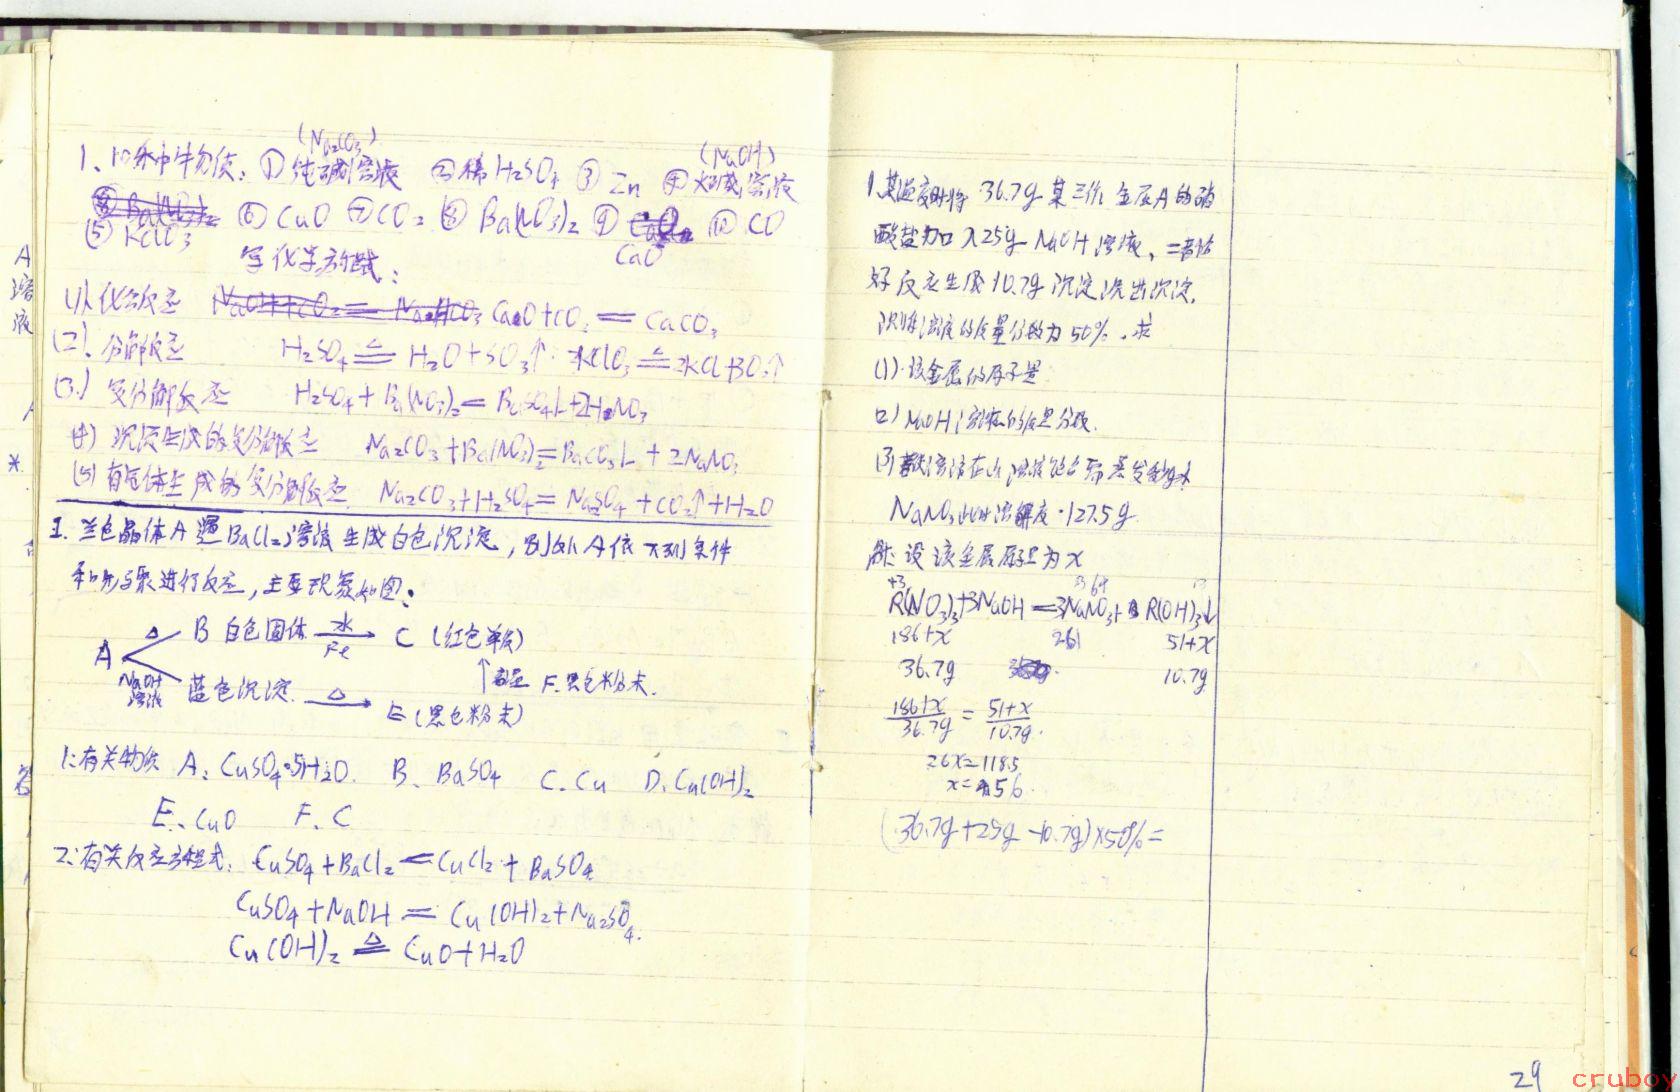 (Na₂CO₃) (NaOH)
1、10种中物质：① 纯碱溶液 ②稀H₂SO₄ ③ Zn ④ 火碱溶液
⑤ KClO₃ ⑥ CuO ⑦ CO₂ ⑧ Ba(NO₃)₂ ⑨ CaO ⑩ CO
写化学方程：
(1) 化合反应 CaO+CO₂ = CaCO₃
(2) 分解反应 H₂SO₄ ≜ H₂O+SO₃↑ 2KClO₃ ≜ 2KCl+3O₂↑
(3) 复分解反应 H₂SO₄+Ba(NO₃)₂=BaSO₄↓+2HNO₃
(4) 沉淀生成的复分解反应 Na₂CO₃+Ba(NO₃)₂=BaCO₃↓+2NaNO₃
(5) 有气体生成的复分解反应 Na₂CO₃+H₂SO₄=Na₂SO₄+CO₂↑+H₂O
2. 兰色晶体A遇BaCl₂溶液生成白色沉淀，另外A依下列条件
和步骤进行反应，主要现象如图：
A △ B 白色固体 水 Fe C (红色单质)
NaOH 溶液 蓝色沉淀 △ E (黑色粉末)
↑ 高温 F.黑色粉末.
1:有关物质 A: CuSO₄·5H₂O. B、BaSO₄ C.Cu D.Cu(OH)₂
E、CuO F、C
2:有关反应方程式: CuSO₄+BaCl₂=CuCl₂+BaSO₄
CuSO₄+NaOH = Cu(OH)₂+Na₂SO₄.
Cu(OH)₂ ≜ CuO+H₂O
1.某温度时将36.7g某三价金属A的硝
酸盐加入25g NaOH溶液，二者恰
好反应生成10.7g沉淀,滤出沉淀,
所得溶液的质量分数为50%.求
(1).该金属的原子量
(2) NaOH溶液的质量分数.
NaNO₃此时溶解度.127.5g
解: 设该金属原子量为x
R(NO₃)₃+3NaOH=3NaNO₃+R(OH)₃↓
186+x 51+x
36.7g 10.7g
(186+x)/36.7g = (51+x)/10.7g.
26x=118.5
x=56.
(36.7g+25g-10.7g)×50%=
29
cruboy